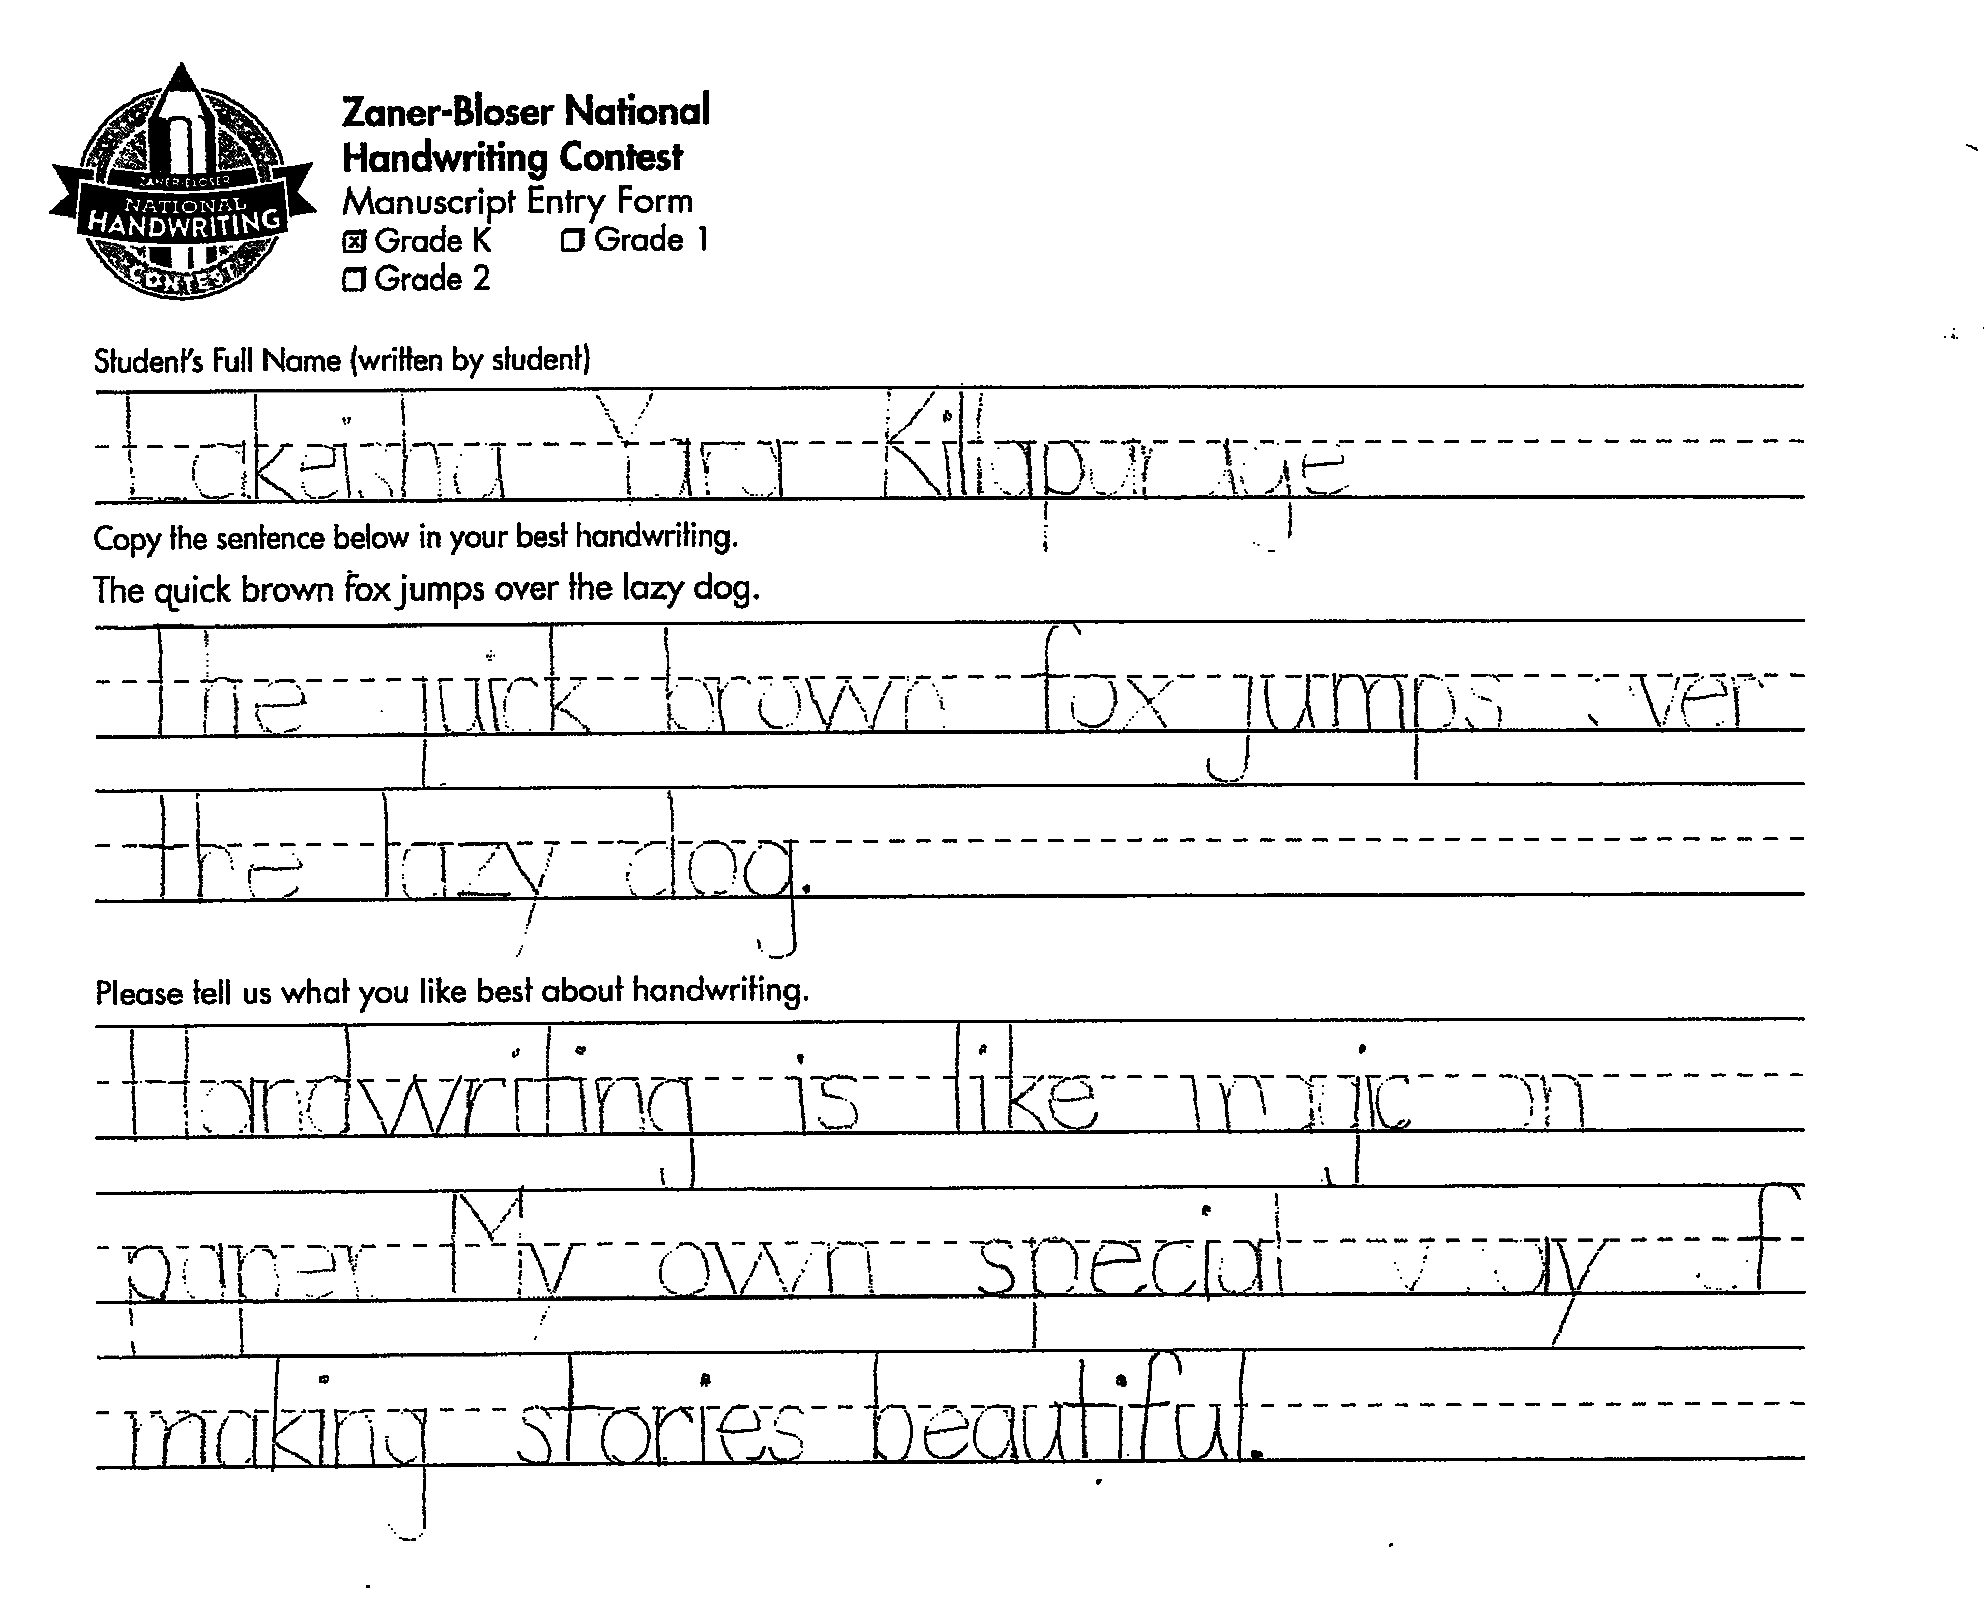 ZANER-BLOSER
NATIONAL
HANDWRITING
CONTEST
Zaner-Bloser National
Handwriting Contest
Manuscript Entry Form
☒ Grade K ☐ Grade 1
☐ Grade 2
Student's Full Name (written by student)
Lakeisha Yara
Copy the sentence below in your best handwriting.
The quick brown fox jumps over the lazy dog.
The quick brown fox jumps over
the lazy dog.
Please tell us what you like best about handwriting.
Handwriting is like magic on
paper My own special way of
making stories beautiful.